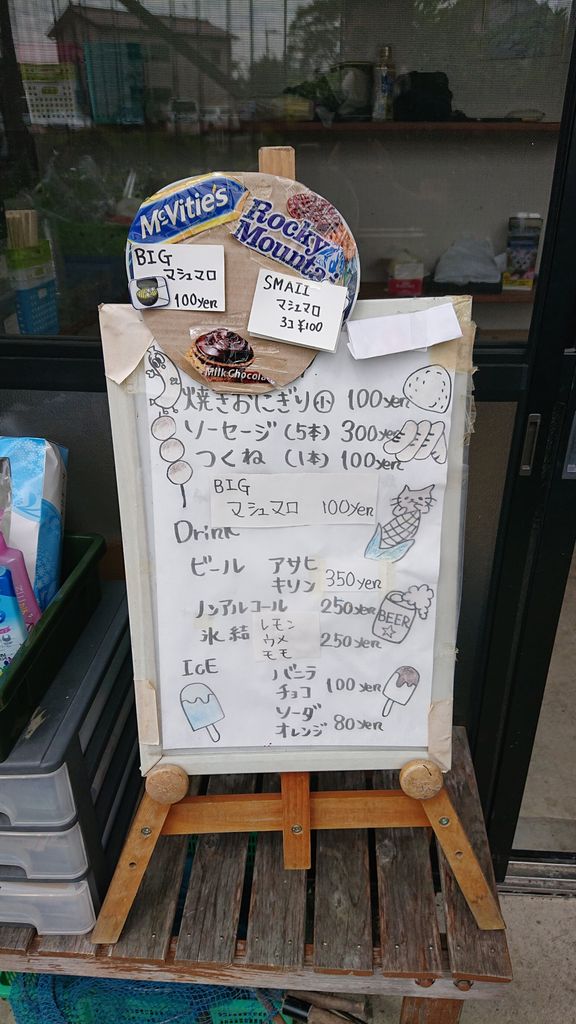 McVitie's
Rocky
Mounta
BIG
マシュマロ
100yen
SMALL
マシュマロ
3コ ¥100
Milk Chocola
焼きおにぎり 100yen
ソーセージ (5本) 300yen
つくね (1本) 100yen
BIG
マシュマロ 100yen
Drink
ビール アサヒ
キリン 350yen
ノンアルコール 250yen
氷結 レモン
ウメ
モモ 250yen
BEER
ICE バニラ
チョコ 100yen
ソーダ
オレンジ 80yen